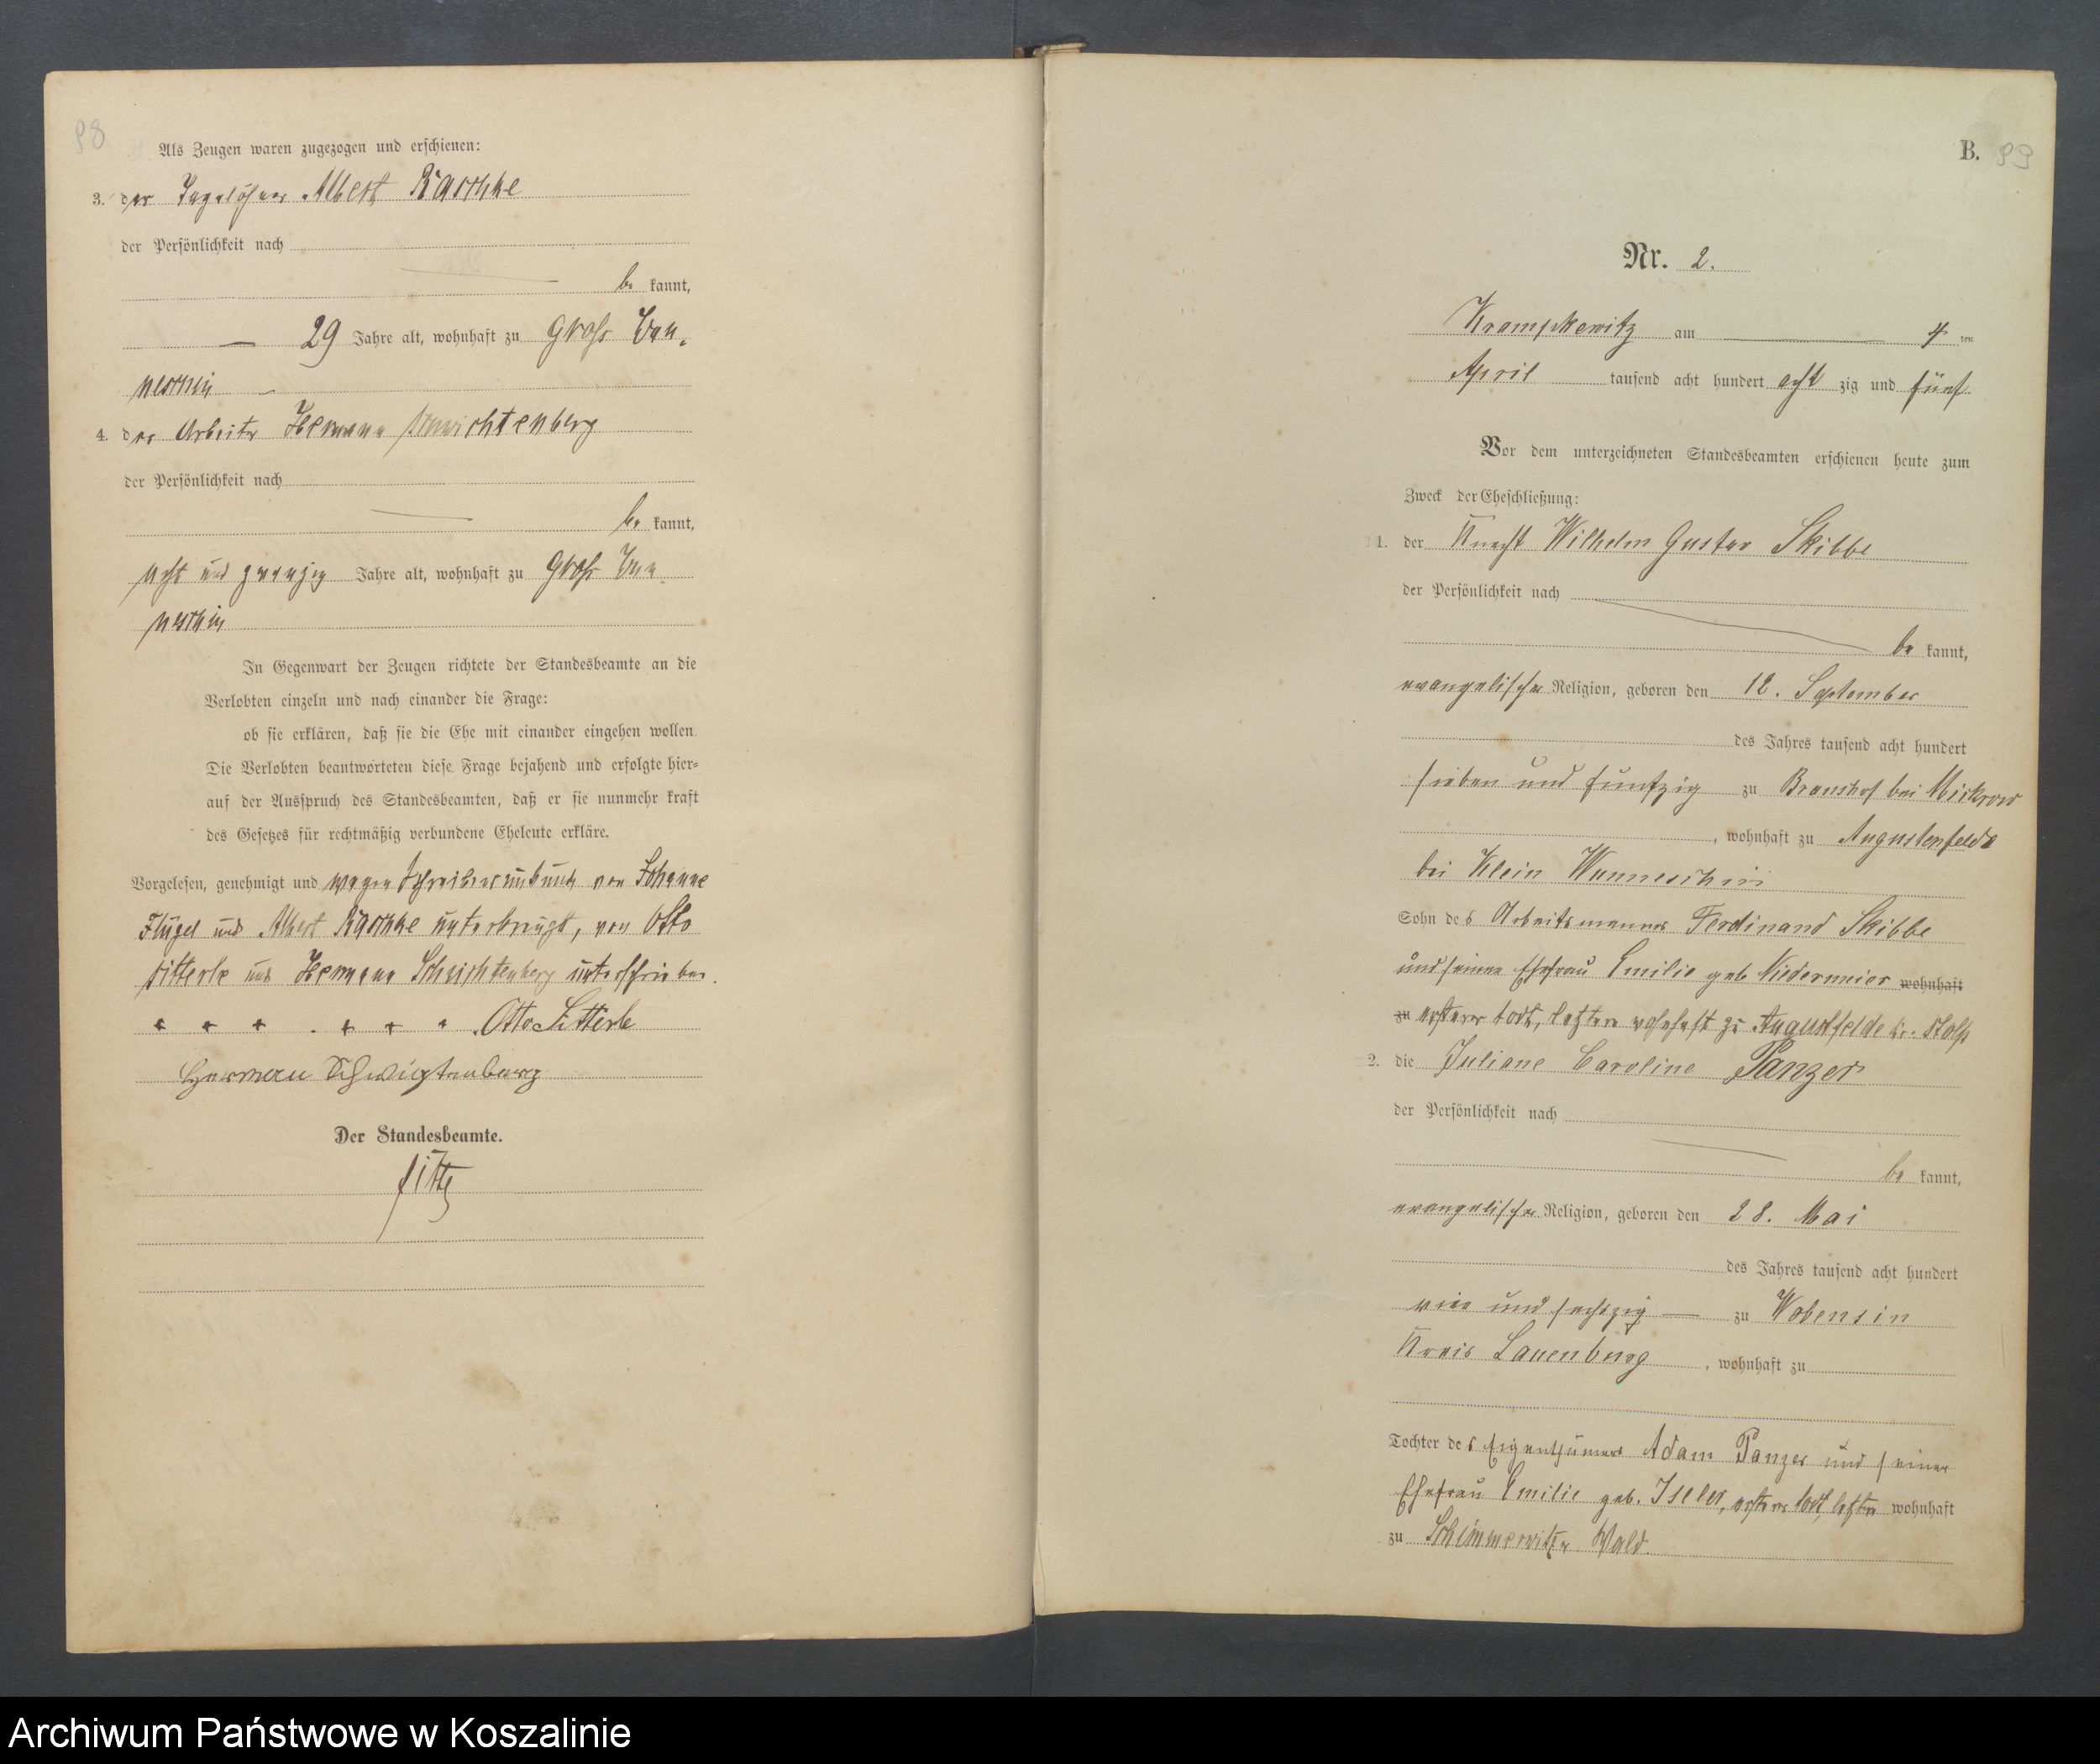 98
Als Zeugen waren zugezogen und erschienen:
3. der Tagelöhner Albert Raschke
der Persönlichkeit nach
be kannt,
29 Jahre alt, wohnhaft zu Gross Wun
neschin
4. der Arbeiter Hermann Schwichtenberg
der Persönlichkeit nach
be kannt,
acht und zwanzig Jahre alt, wohnhaft zu Gross Wun
neschin
In Gegenwart der Zeugen richtete der Standesbeamte an die
Verlobten einzeln und nach einander die Frage:
ob sie erklären, daß sie die Ehe mit einander eingehen wollen.
Die Verlobten beantworteten diese Frage bejahend und erfolgte hier=
auf der Ausspruch des Standesbeamten, daß er sie nunmehr kraft
des Gesetzes für rechtmäßig verbundene Eheleute erkläre.
Vorgelesen, genehmigt und wegen Schreibensunkunde von Johanne
Flügel und Albert Raschke unterkreuzt, von Otto
und Hermann Schwichtenberg unterschrieben.
+ + + . + + + . Otto
Herman Schwigtenberg
Der Standesbeamte.
B. 99
Nr. 2.
Krampkewitz am 4 ten
April tausend acht hundert acht zig und fünf
Vor dem unterzeichneten Standesbeamten erschienen heute zum
Zweck der Eheschließung:
1. der Knecht Wilhelm Gustav Skibbe
der Persönlichkeit nach
be kannt,
evangelischer Religion, geboren den 12. September
des Jahres tausend acht hundert
sieben und funfzig zu bei Mickrow
, wohnhaft zu Augustenfelde
bei Klein Wunneschin
Sohn des Arbeitsmannes Ferdinand Skibbe
und seiner Ehefrau Emilie geb. Niedermeier wohnhaft
zu ersterer todt, letztere wohnhaft zu Augustfelde Kr. Stolp
2. die Juliane Caroline Panzer
der Persönlichkeit nach
be kannt,
evangelischer Religion, geboren den 28. Mai
des Jahres tausend acht hundert
vier und sechszig zu Wobensin
Kreis Lauenburg , wohnhaft zu
Tochter des Eigenthümers Adam Panzer und seiner
Ehefrau Emilie geb. Iseler, ersterer todt, letztere wohnhaft
zu Schimmerwitzer Wald.
Archiwum Państwowe w Koszalinie